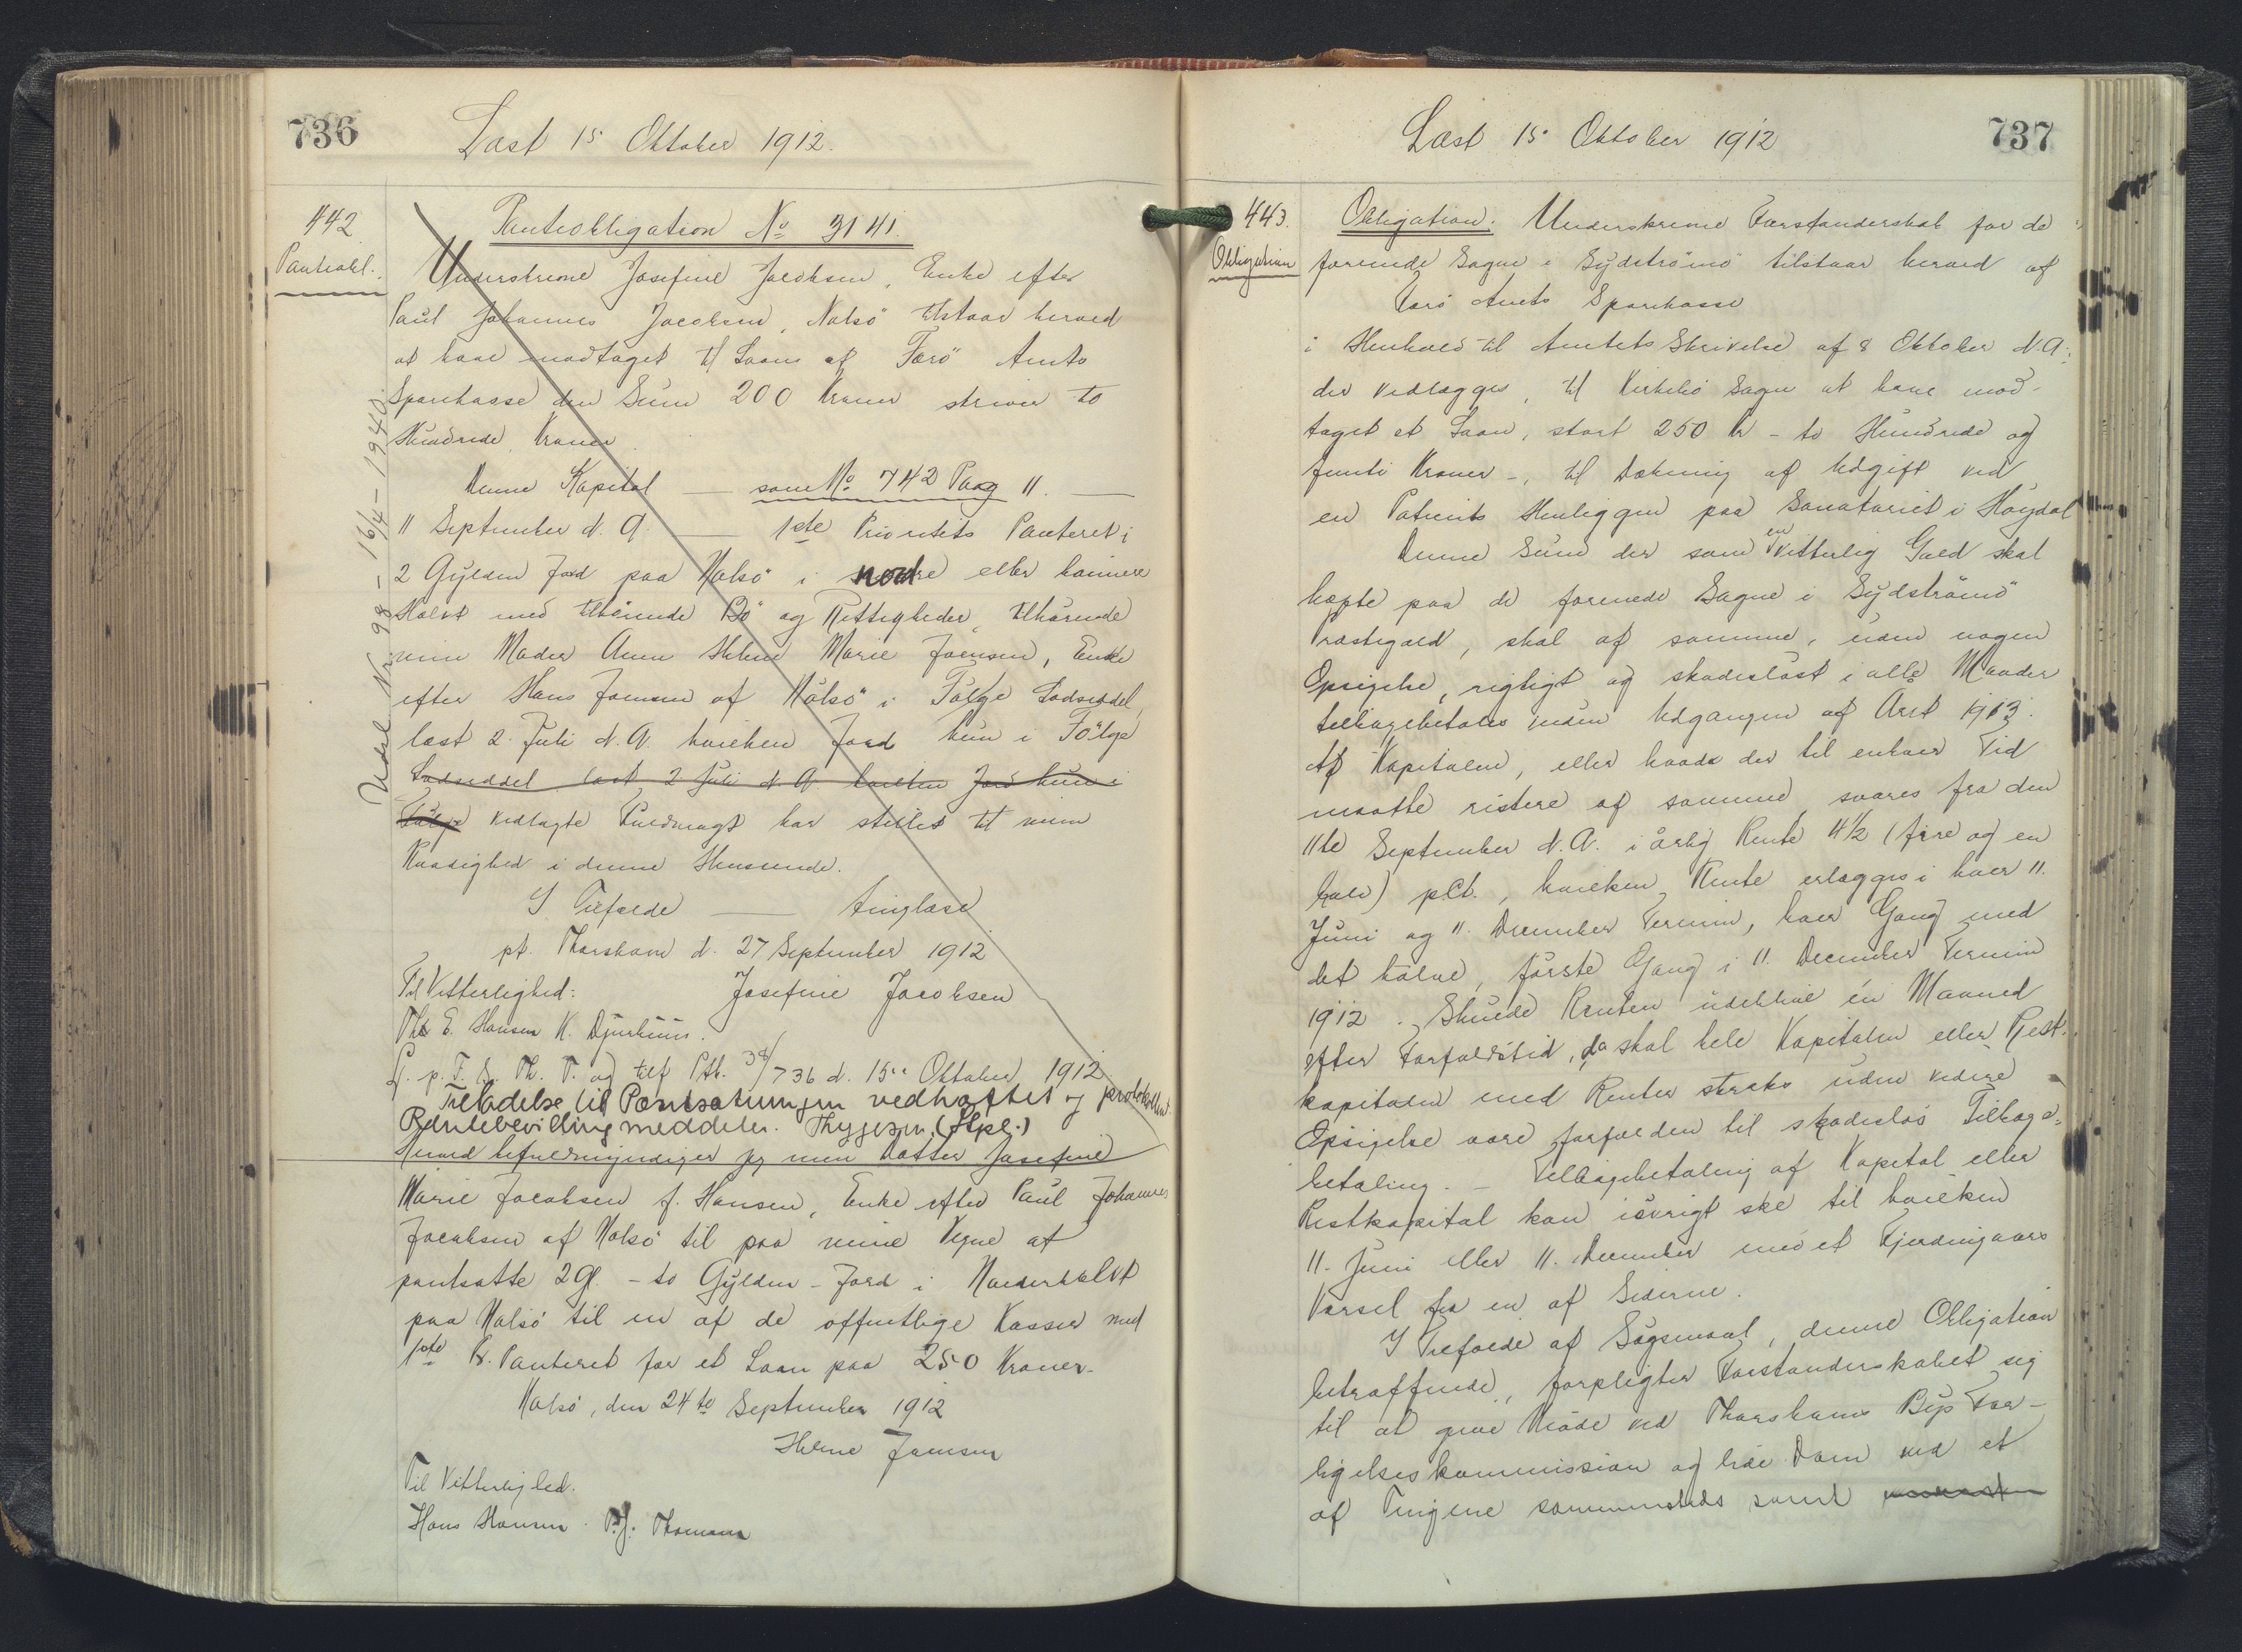 736
Læst 15 Oktober 1912.
442
Panteobl.
Udsl. Nr. 98 - 16/4 - 1940.
Panteobligation No 3141.
Underskrevne Josefine Jacobsen, Enke efter
Paul Johannes Jacobsen, Nolsö tilstaar herved
at have modtaget til Laans af Færö Amts
Sparekasse den Sum 200 Kroner skriver to
Hundrede Kroner.
Denne Kapital — som No 742 Pag 11. —
11 September d. A. — 1ste Prioritets Panteret i
2 Gylden Jord paa Nolsö i nordre eller
Halvt med tilhörende Bö og Rettigheder, tilhörende
min Moder Anne Helene Marie Joensen, Enke
efter Hans Joensen af Nolsö i Fölge Lodseddel,
læst 2. Juli d. A. hvilken Jord hun i Fölge
Lodseddel læst 2 Juli d. A. hvilken Jord hun i
Fölge vedlagte Fuldmagt har stillet til min
Raadighed i denne Henseende.
I Tilfælde — tinglæse
pt. Thorshavn d. 27 September 1912
Til Vitterlighed: Josefine Jacobsen
E. Hansen K. Djurhuus.
L. p. F. S. Th. T. og tilf Ptb. 38/736 d. 15de Oktober 1912
Tilladelse til Pantsætningen vedhæftet og protokolleret
Rentebevilling meddeles. Thygesen (Hpl.)
Herved befuldmyndiger jeg min Datter Josefine
Marie Jacobsen f. Hansen, Enke efter Paul Johannes
Jacobsen af Nolsö til paa mine Vegne at
pantsætte 2 Gl. - to Gylden - Jord i Norderhalvt
paa Nolsö til en af de offentlige Kasser med
1ste Pr. Panteret for et Laan paa 250 Kroner.
Nolsö, den 24te September 1912
Helene Joensen
Til Vitterlighed.
Hans Hansen. P.J. Thomsen
737
Læst 15. Oktober 1912
443.
Obligation
Obligation. Underskrevne Forstanderskab for de
forenede Sogne i Sydströmö tilstaar herved af
Færö Amts Sparekasse
i Henhold til Amtets Skrivelse af 8 Oktober d. A.
der vedlægges, til Kirkebö Sogn at have mod-
taget et Laan, stort 250 Kr - to Hundrede og
femti Kroner -, til Dækning af Udgift ved
en Patients Henliggen paa Sanatoriet i Hoydal
Denne Sum der som en vitterlig Gæld skal
hæfte paa de forenede Sogne i Sydströmö
Præstegæld, skal af samme, uden nogen
Opsigelse, rigtigt og skadeslöst i alle Maader
tilbagebetales inden Udgangen af Aret 1913.
Af Kapitalen, eller hvada der til enhver Tid
maatte restere af samme, svares fra den
11te September d. A. i årlig Rente 4½ (fire og en
halv) pCt., hvilken Rente erlægges i hver 11.
Juni og 11. December Termin, hver Gang med
det halve, förste Gang i 11. December Termin
1912. Skulde Renten udeblive én Maaned
efter Forfaldstid, da skal hele Kapitalen eller Rest-
kapitalen med Renter straks uden videre
Opsigelse være forfalden til skadeslös Tilbage-
betaling. - Tilbagebetaling af Kapital eller
Restkapital kan iövrigt ske til hvilken
11. Juni eller 11. December med et Fjerdingaars
Varsel fra en af Siderne.
I Tilfælde af Sögsmaal, denne Obligation
betræffende, forpligter Forstanderskabet sig
til at give Möde ved Thorshavns Bys For-
ligelseskommission og lide Dom ved et
af Tingene sammesteds samt